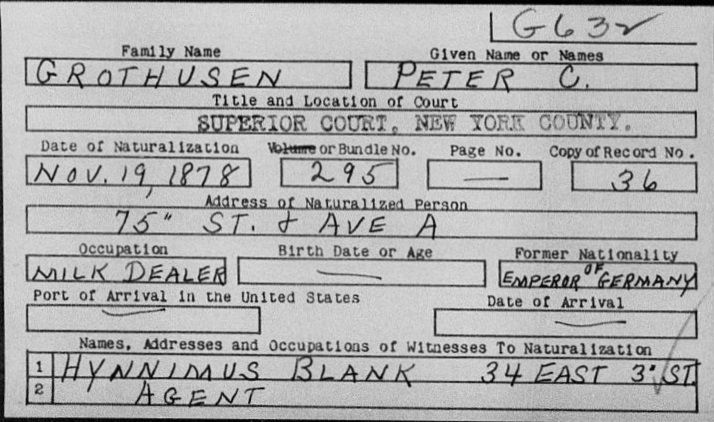 G632
Family Name Given Name or Names
GROTHUSEN PETER C.
Title and Location of Court
SUPERIOR COURT, NEW YORK COUNTY.
Date of Naturalization Volume or Bundle No. Page No. Copy of Record No.
NOV. 19, 1878 295 — 36
Address of Naturalized Person
75" ST. & AVE A
Occupation Birth Date or Age Former Nationality
MILK DEALER — EMPEROR OF GERMANY
Port of Arrival in the United States Date of Arrival
— —
Names, Addresses and Occupations of Witnesses To Naturalization
1 HYNNIMUS BLANK 34 EAST 3" ST.
2 AGENT